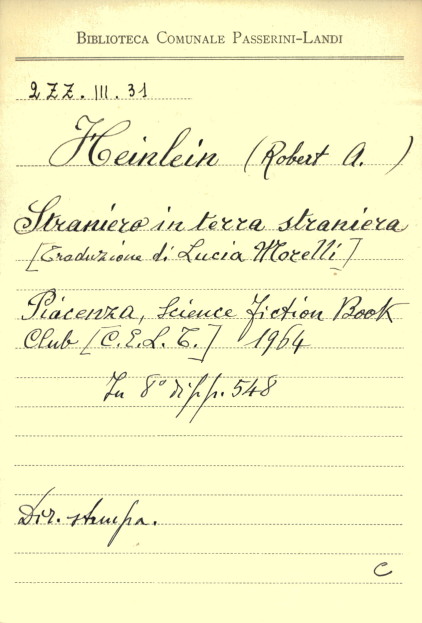 BIBLIOTECA COMUNALE PASSERINI-LANDI
2 ZZ. III. 31
Heinlein (Robert A. )
Straniero in terra straniera
[Traduzione di Lucia Morelli]
Piacenza, Science Fiction Book
Club [C.E.L.T.] 1964
In 8° di pp. 548
Dir. stampa.
C